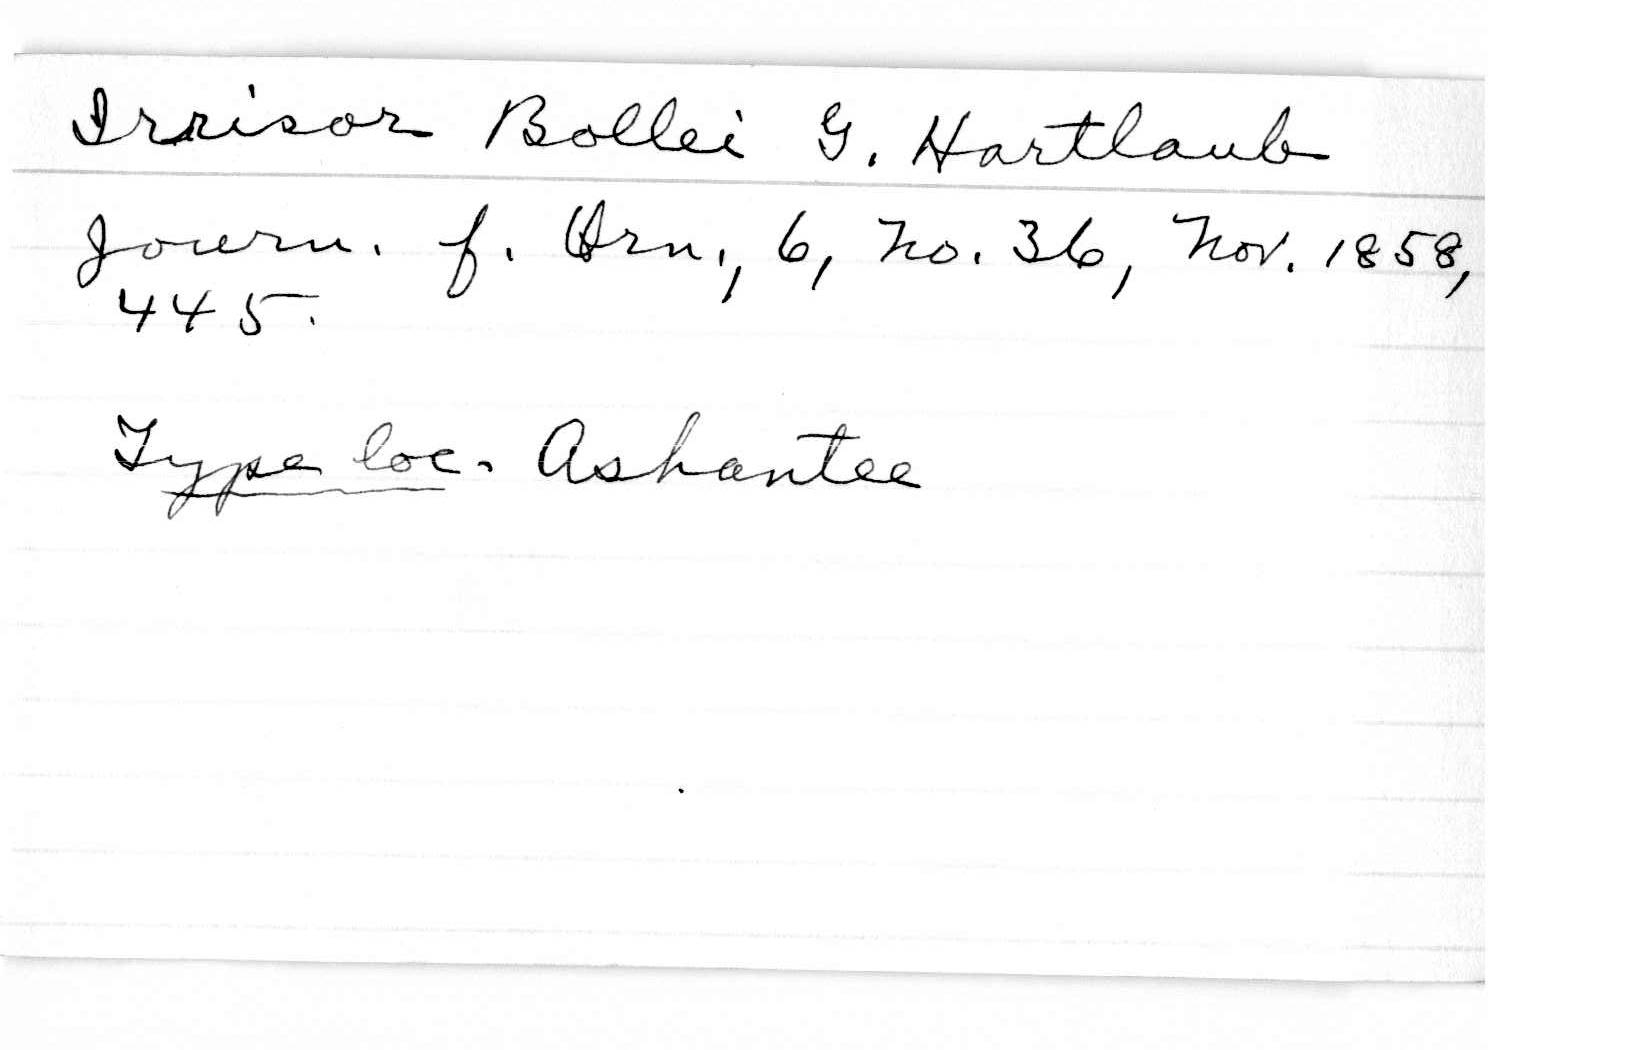 Irrisor Bollei G. Hartlaub
Journ. f. Orn., 6, no. 36, Nov. 1858,
445.
Type loc. Ashantee